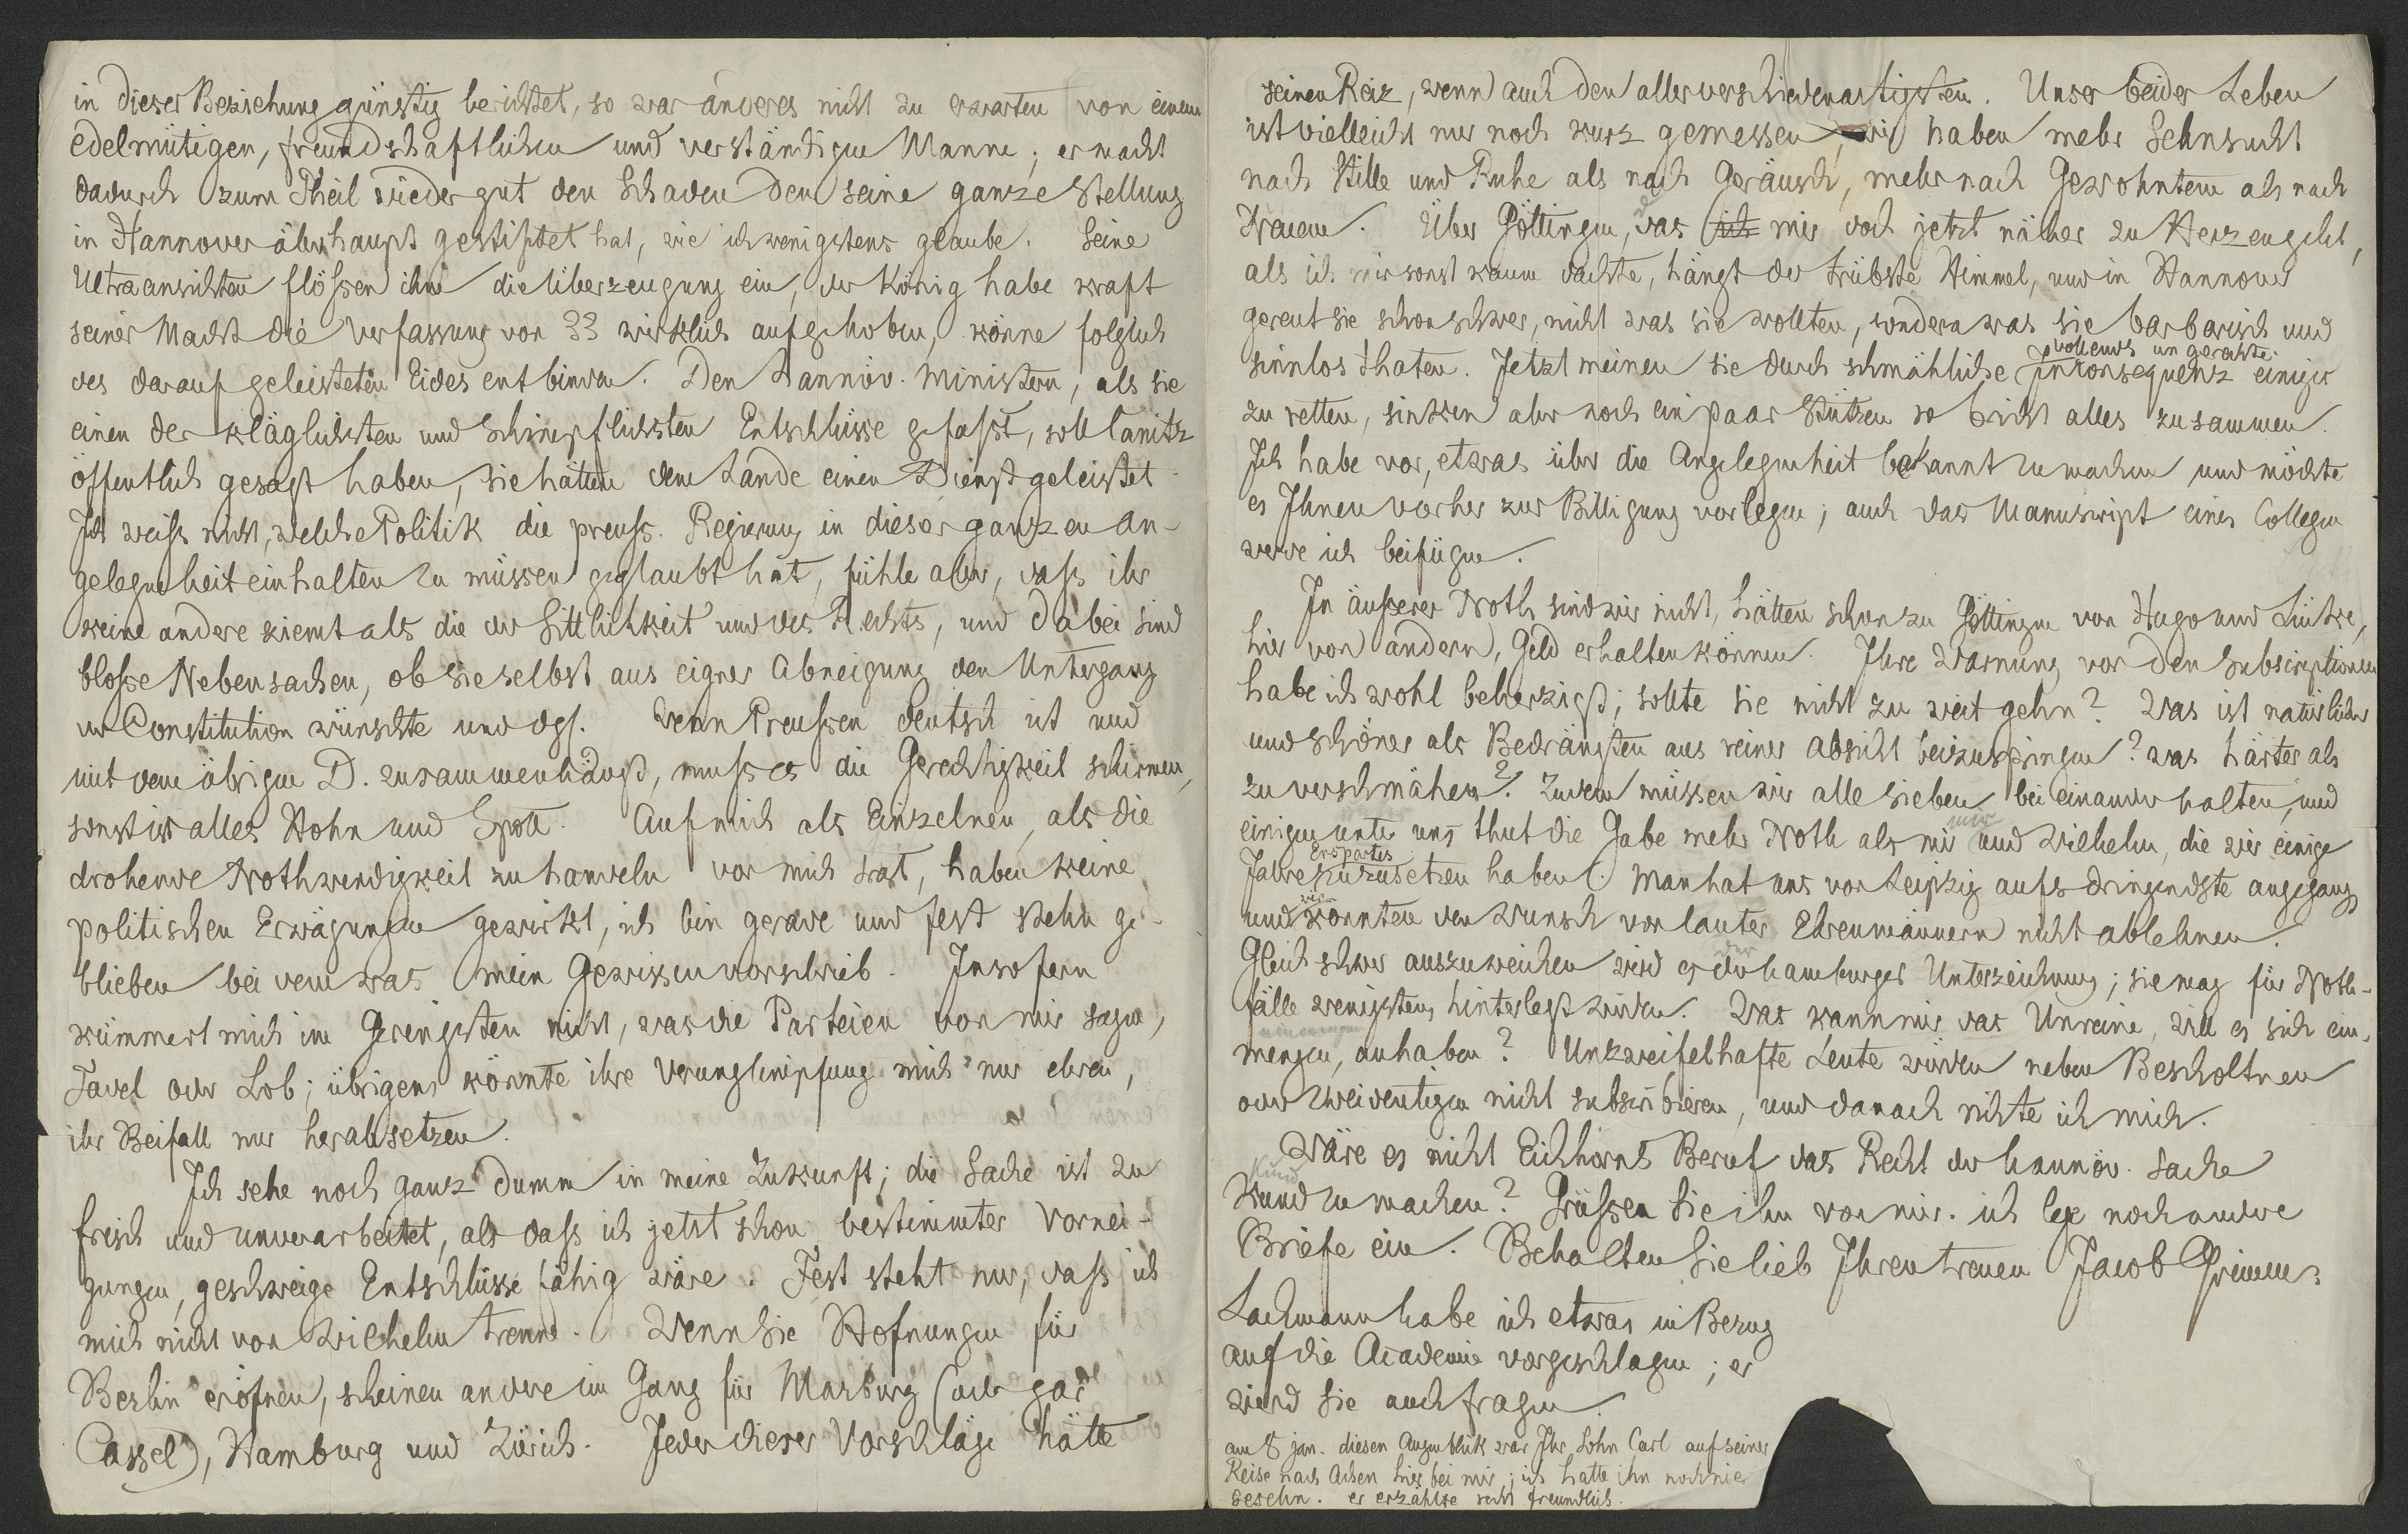 in dieser Beziehung günstig berichtet, so war anderes nicht zu erwarten von einem
edelmütigen, freundschaftlichen und verständigen Manne; er macht
dadurch zum Theil wieder gut den Schaden den seine ganze Stellung
in Hannover überhaupt gestiftet hat, wie ich wenigstens glaube. Seine
Ultraansichten flößen ihm die Überzeugung ein, der König habe kraft
seiner Macht die Verfassung von 33 wirklich aufgehoben, könne folglich
des darauf geleisteten Eides entbinden. Den hannöv. Ministern, als sie
einen der kläglichsten und schimpflichsten Entschlüsse gefaßt, soll Canitz
öffentlich gesagt haben, sie hätten dem Lande einen Dienst geleistet
Ich weiß nicht, welche Politik die preuß. Regierung in dieser ganzen An-
gelegenheit einhalten zu müssen geglaubt hat, fühle aber, daß ihr
keine andere ziemt als die der Sittlichkeit und des Rechts, und dabei sind
bloße Nebensachen, ob sie selbst aus eigner Abneigung den Untergang
der Constitution wünschte und dgl. Wenn Preußen deutsch ist und
mit dem übrigen D. zusammenhängt, muß es die Gerechtigkeit schirmen,
sonst ist alles Hohn und Spott. Auf mich als Einzelnen, als die
drohende Nothwendigkeit zu handeln vor mich trat, haben keine
politischen Erwägungen gewirkt, ich bin gerade und fest stehn ge-
blieben bei dem was mein Gewissen vorschrieb. Insofern
kümmert mich im Geringsten nicht, was die Parteien von mir sagen,
Tadel oder Lob; übrigens könnte ihre Verunglimpfung mich nur ehren,
ihr Beifall nur herabsetzen.
Ich sehe noch ganz dumm in meine Zukunft; die Sache ist zu
frisch und unverarbeitet, als daß ich jetzt schon bestimmter Vornei-
gungen, geschweige Entschlüsse fähig wäre. Fest steht nur, daß ich
mich nicht von Wilhelm trenne. Wenn Sie Hofnungen für
Berlin eröfnen, scheinen andere im Gang für Marburg (oder gar
Cassel), Hamburg und Zürich. Jeder dieser Vorschläge hätte
seinen Reiz, wenn auch den allerverschiedenartigsten. Unser beider Leben
ist vielleicht nur noch kurz gemessen, wir haben mehr Sehnsucht
nach Stille und Ruhe als nach Geräusch, mehr nach Gewohntem als nach
Neuem. Über Göttingen, das ich mir doch jetzt näher zu Herzen geht,
als ich mir sonst kaum dachte, hängt der trübste Himmel, und in Hannover
gereut sie schon schwer, nicht was sie wollten, sondern was sie barbarisch und
vollends ungerechte
sinnlos thaten. Jetzt meinen sie durch schmähliche Inconsequenz einige
zu retten, sinken aber noch ein paar Stützen so bricht alles zusammen.
Ich habe vor, etwas über die Angelegenheit bekannt zu machen und möchte
es Ihnen vorher zur Billigung vorlegen; auch das Manuscript eines Collegen
werde ich beifügen.
In äußerer Noth sind wir nicht, hätten schon zu Göttingen von Hugo und Lücke,
hier von andern, Geld erhalten können. Ihre Warnung vor den Subscriptionen
habe ich wohl beherzigt; sollte sie nicht zu weit gehn? Was ist natürlicher
und schöner als Bedrängten aus reiner Absicht beizuspringen? was härter als
zu verschmähen? Zudem müssen wir alle sieben bei einander halten, und
einigen unter uns thut die Gabe mehr Noth als mir und Wilhelm, die wir einige
mir
Erspartes
Jahre zuzusetzen haben. Man hat uns von Leipzig aufs dringendste angegangen
wir
und konnten den Wunsch von lauter Ehrenmännern nicht ablehnen.
der
Gleich schwer auszuweichen wird es der hamburger Unterzeichnung; sie mag für Noth-
fälle wenigstens hinterlegt werden. Was kann mir das Unreine, will es sich ein-
einmengen
mengen, anhaben? Unzweifelhafte Leute würden neben Bescholtnen
oder Zweideutigen nicht subscribieren, und danach richte ich mich.
Wäre es nicht Eichhorns Beruf das Recht der hannöv. Sache
kund
kund zu machen? Grüßen Sie ihn von mir. ich lege noch andere
Briefe ein. Behalten Sie lieb Ihren treuen Jacob Grimm.
Lachmann habe ich etwas in Bezug
auf die Academie vorgeschlagen; er
wird Sie auch fragen.
am 8 jan. diesen Augenblick war Ihr Sohn Carl auf seiner
Reise nach Achen hier bei mir; ich hatte ihn noch nie
gesehn. er erzählte recht freundlich.